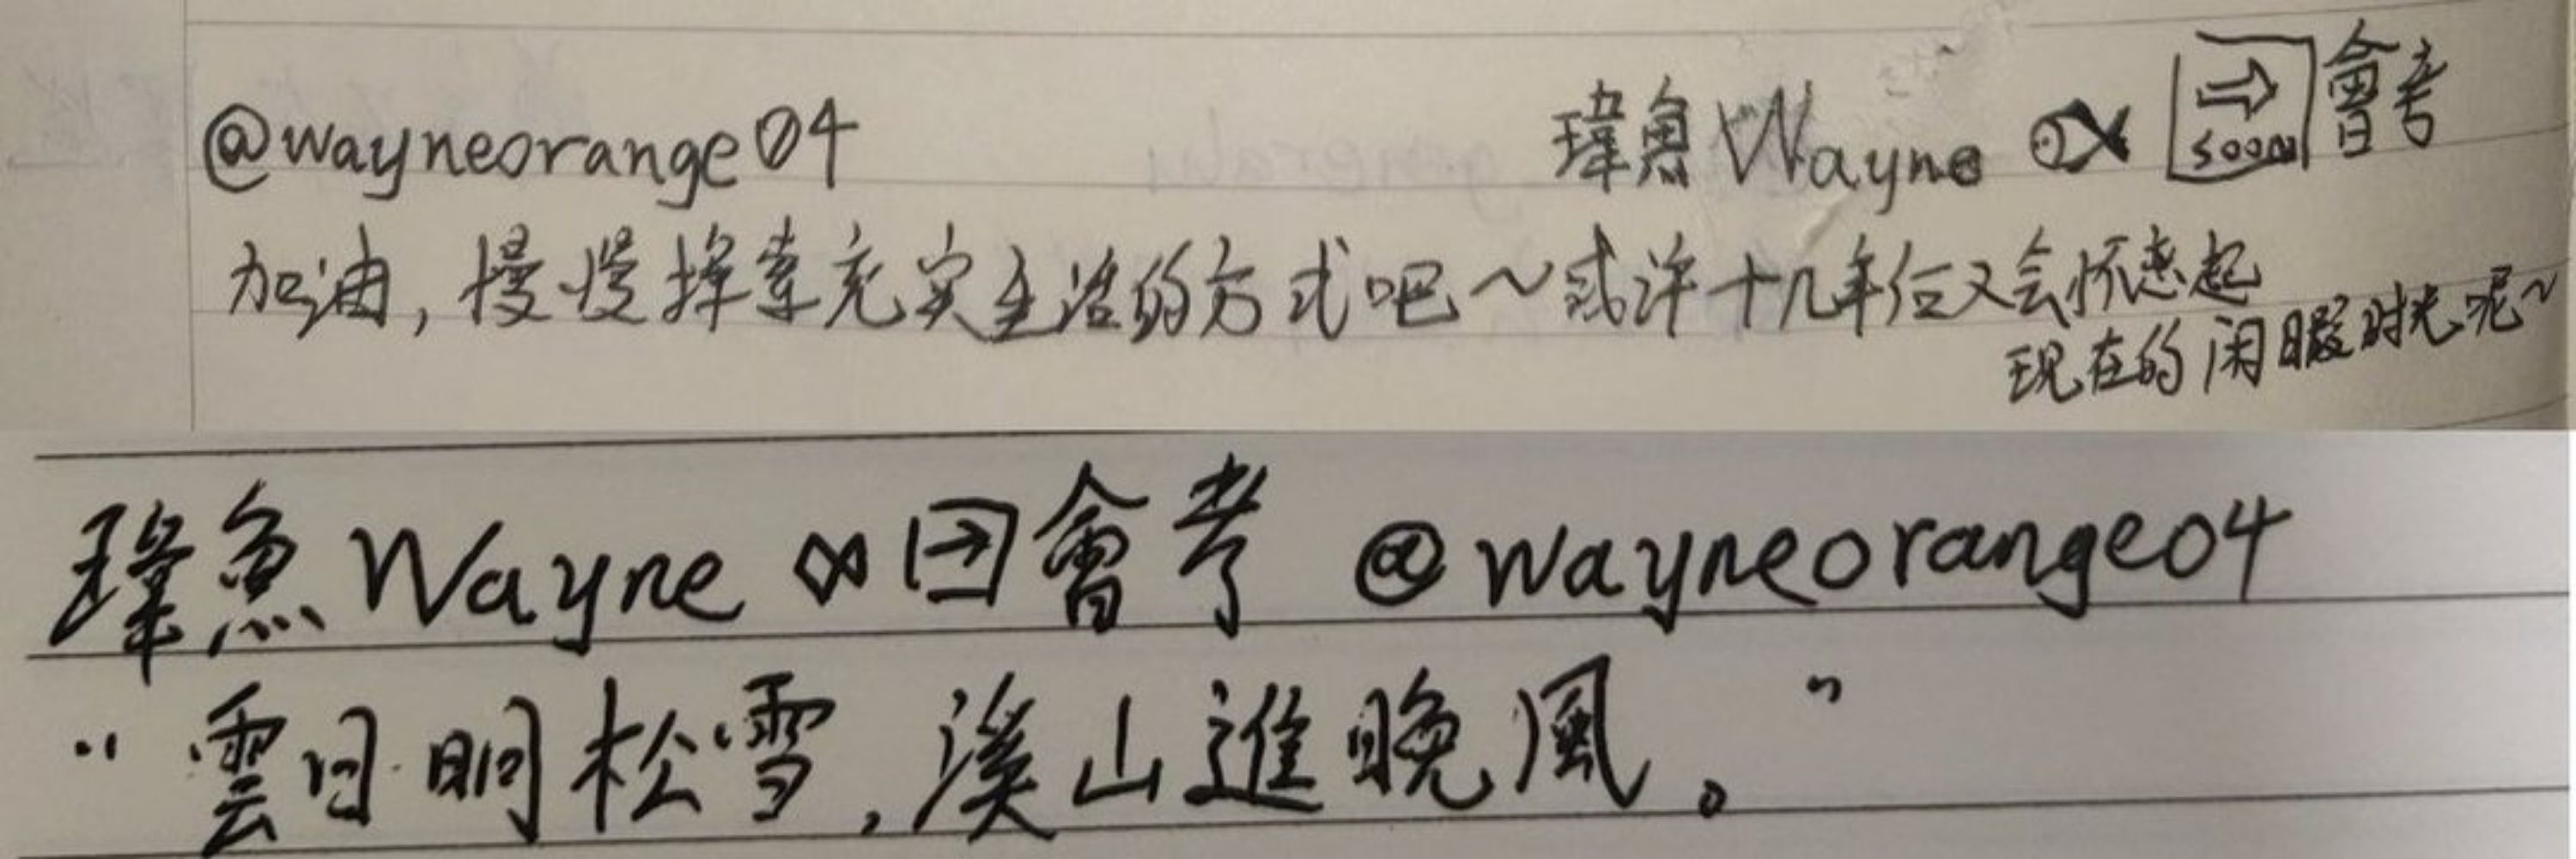 @wayneorange04 瑋魚 Wayne 🐟 🔜 會考
加油，慢慢择索充实生活的方式吧～或许十几年后又会怀恋起
现在的闲暇时光呢～
瑋魚 Wayne ∝ → 會考 @wayneorange04
“雲日明松雪，溪山進晚風。”